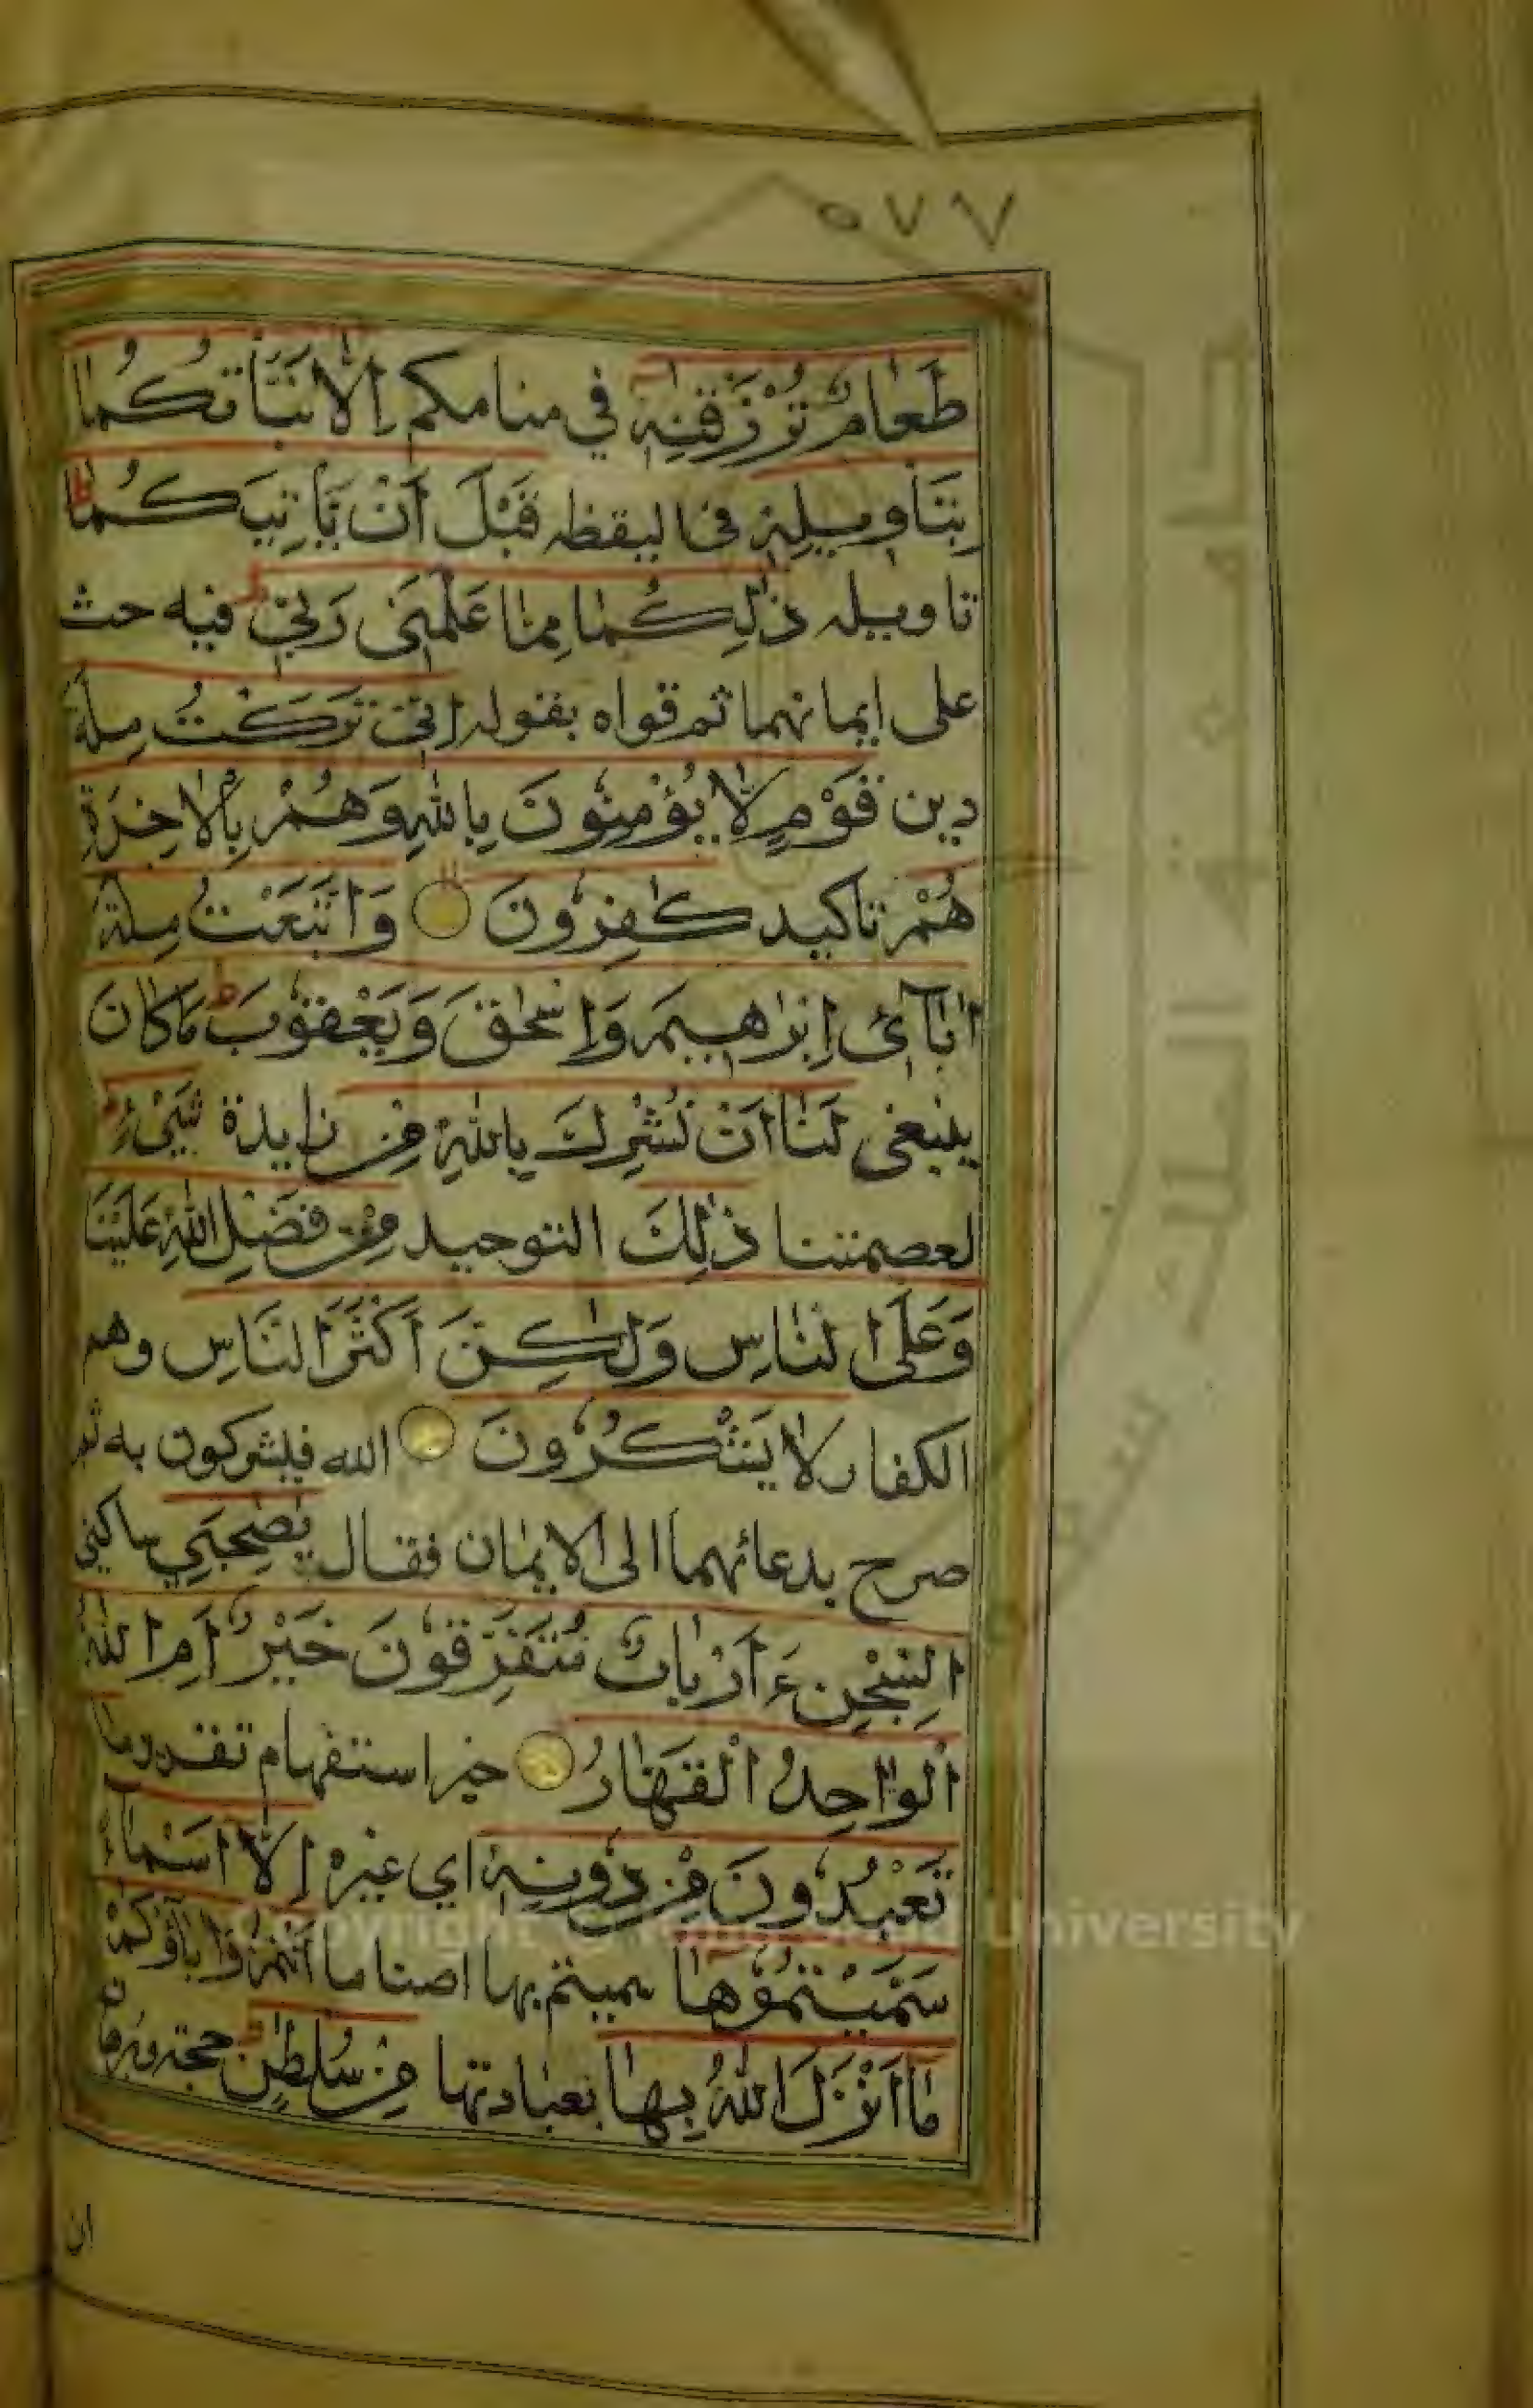 ٥٧٧
طَعَامٌ تُرْزَقٰنِهٖ في منامكم اِلَّا نَبَّأْتُكُمَا
بِتَاْوِيلِهٖ في اليقظه قَبْلَ اَنْ يَّأْتِيَكُمَا ط
تاويله ذٰلِكُمَا مِمَّا عَلَّمَنِى رَبِّىْ ط فيه حث
على ايمانهما ثم قواه بقوله اِنِّىْ تَرَكْتُ مِلَّةَ
دين قَوْمٍ لَّا يُؤْمِنُوْنَ بِاللّٰهِ وَهُمْ بِالْاٰخِرَةِ
هُمْ تاكيد كٰفِرُوْنَ وَاتَّبَعْتُ مِلَّةَ
اٰبَآئِىْ اِبْرٰهِيْمَ وَاِسْحٰقَ وَيَعْقُوْبَ ط مَا كَانَ
ينبغى لَنَا اَنْ نُّشْرِكَ بِاللّٰهِ مِنْ زايدة شَىْءٍ ط
لعصمتنا ذٰلِكَ التوحيد مِنْ فَضْلِ اللّٰهِ عَلَيْنَا
وَعَلَى النَّاسِ وَلٰكِنَّ اَكْثَرَ النَّاسِ وهم
الكفار لَا يَشْكُرُوْنَ الله فيشركون به ثم
صرح بدعائهما الى الايمان فقال يٰصٰحِبَىِ ساكني
السِّجْنِ ءَاَرْبَابٌ مُّتَفَرِّقُوْنَ خَيْرٌ اَمِ اللّٰهُ
الْوَاحِدُ الْقَهَّارُ خير استفهام تقرير مَا
تَعْبُدُوْنَ مِنْ دُوْنِهٖ اي غيره اِلَّا اَسْمَآءً
سَمَّيْتُمُوْهَا سميتم بها اصناما اَنْتُمْ وَاٰبَآؤُكُمْ
مَا اَنْزَلَ اللّٰهُ بِهَا بعبادتها مِنْ سُلْطٰنٍ ط حجة وبرهان
ان
جامعة الملك سعود
Copyright © King Saud University